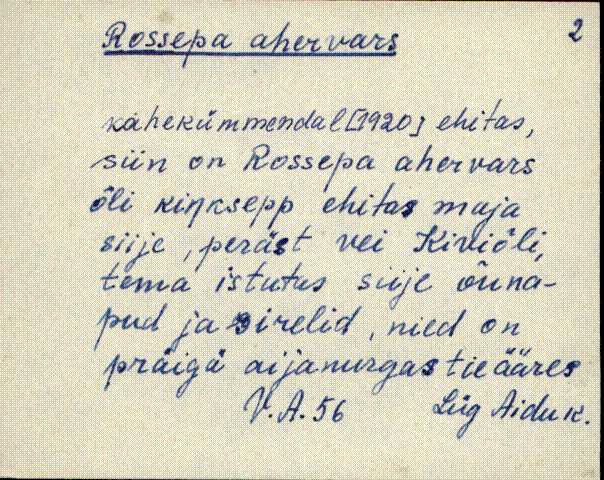 Rossepa ahervars 2
kahekümmendal [1920] ehitas,
siin on Rossepa ahervars
õli kiŋksepp ehitas maja
siije, peräst vei Kiviõli,
tema istutus siije õuna-
pud ja sirelid, nied on
präigä aijanurgas tieääres
V.A. 56 Lüg Aidu k.